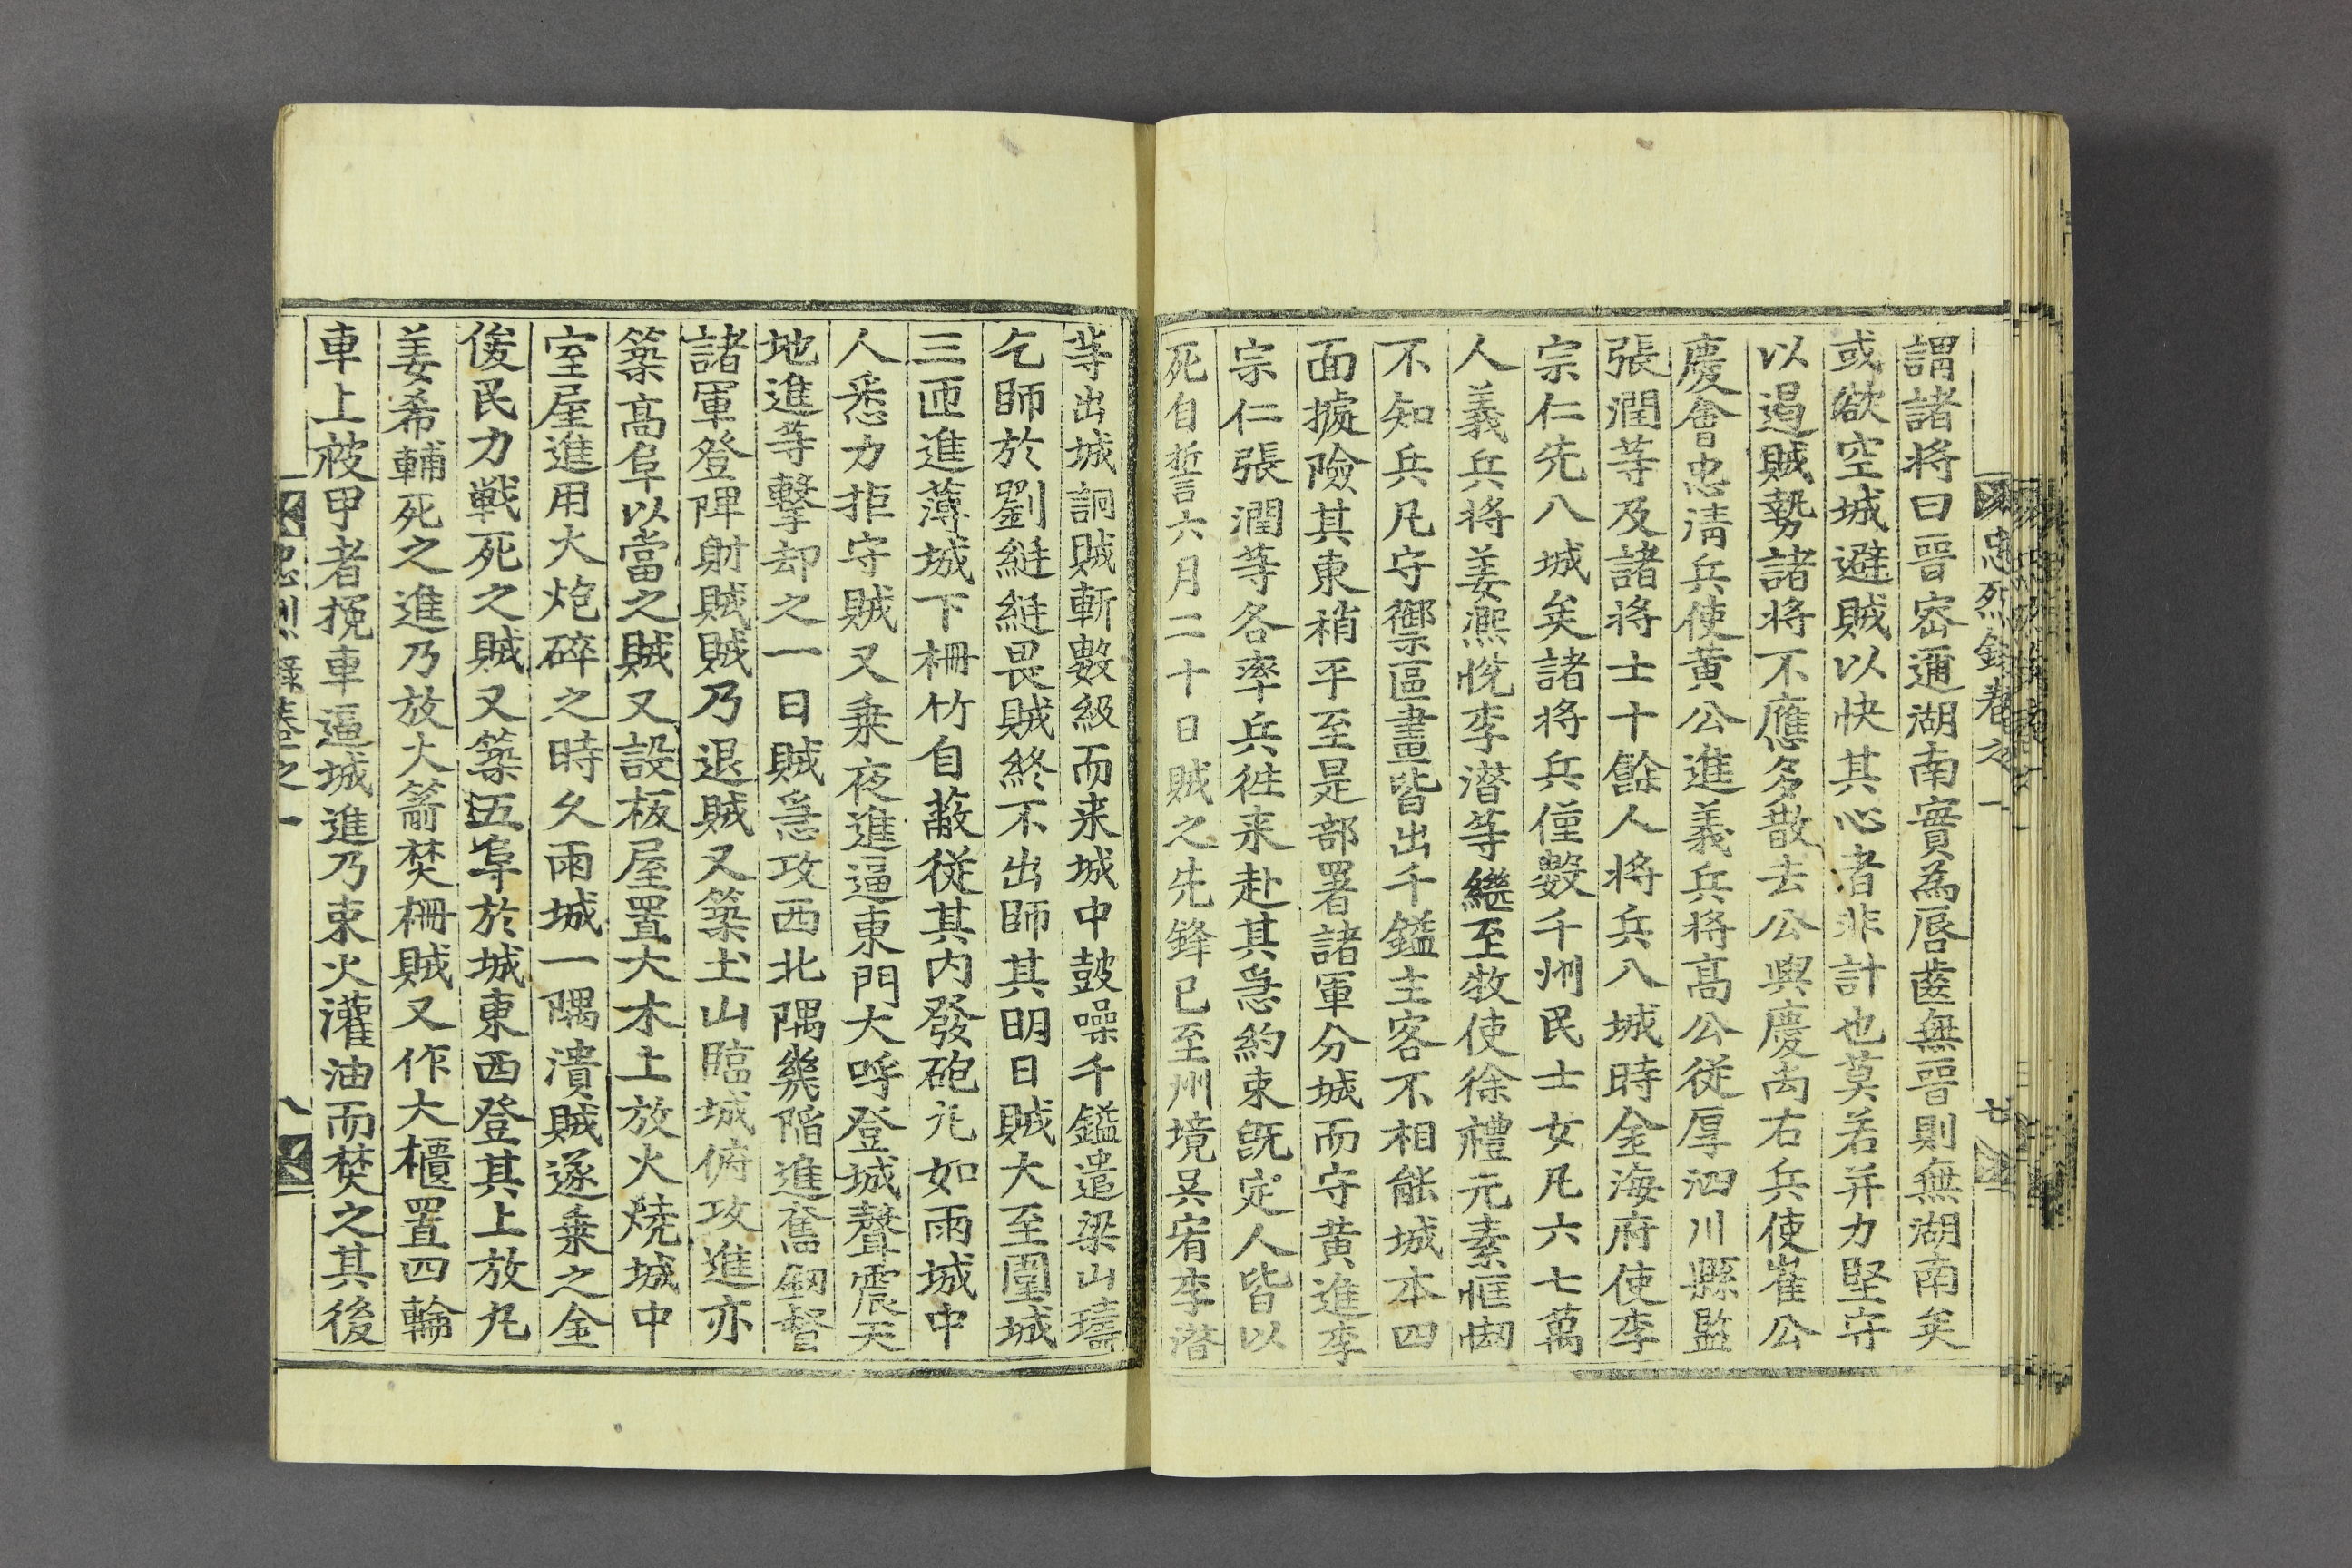 忠烈錄卷之一
七
謂諸將曰晉密邇湖南實為唇齒無晉則無湖南矣
或欲空城避賊以快其心者非計也莫若并力堅守
以遏賊勢諸將不應多散去公與慶尙右兵使崔公
慶會忠淸兵使黃公進義兵將高公從厚泗川縣監
張潤等及諸將士十餘人將兵入城時金海府使李
宗仁先入城矣諸將兵僅數千州民士女凡六七萬
人義兵將姜熙悅李潜等繼至牧使徐禮元素恇㥘
不知兵凡守禦區畫皆出千鎰主客不相能城本四
面據險其東稍平至是部署諸軍分城而守黃進李
宗仁張潤等各率兵徃来赴其急約束旣定人皆以
死自誓六月二十日賊之先鋒已至州境吳宥李潜
等出城詗賊斬數級而来城中鼓噪千鎰遣梁山璹
乞師於劉綎綎畏賊終不出師其明日賊大至圍城
三匝進薄城下柵竹自蔽從其內發砲丸如雨城中
人悉力拒守賊又乗夜進逼東門大呼登城聲震天
地進等擊却之一日賊急攻西北隅幾陷進奮劒督
諸軍登陴射賊賊乃退賊又築土山臨城俯攻進亦
築高阜以當之賊又設板屋置大木上放火燒城中
室屋進用大炮碎之時久雨城一隅潰賊遂乗之金
俊民力戰死之賊又築五阜於城東西登其上放丸
姜希輔死之進乃放火箭焚柵賊又作大櫃置四輪
車上被甲者挽車逼城進乃束火灌油而焚之其後
忠烈錄卷之一
八